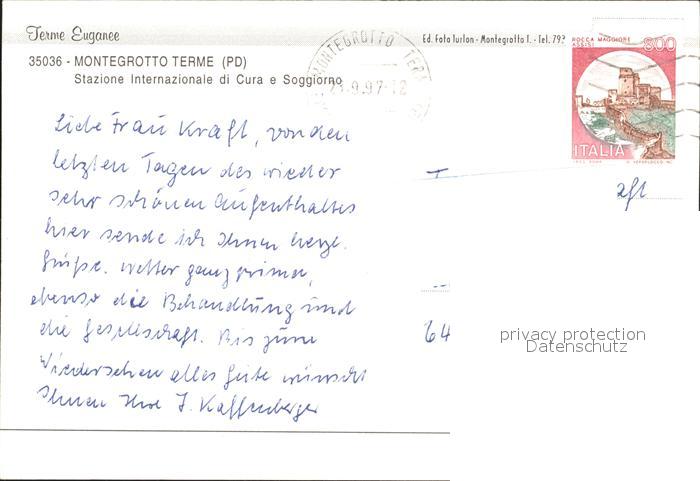 Terme Euganee
Ed. Foto Turlon - Montegrotto T. - Tel. 793
35036 - MONTEGROTTO TERME (PD)
Stazione Internazionale di Cura e Soggiorno
MONTEGROTTO TERME
9.97-12
ROCCA MAGGIORE
ASSISI
800
ITALIA
Liebe Frau Kraft, von den
letzten Tagen des wieder
sehr schönen Aufenthaltes
hier sende ich Ihnen herzl.
Grüße. Wetter ganz prima,
ebenso die Behandlung und
die Gesellschaft. Bis zum
Wiedersehen alles Gute wünscht
Ihnen Ihre J. Kaffenberger
aft
64
privacy protection
Datenschutz